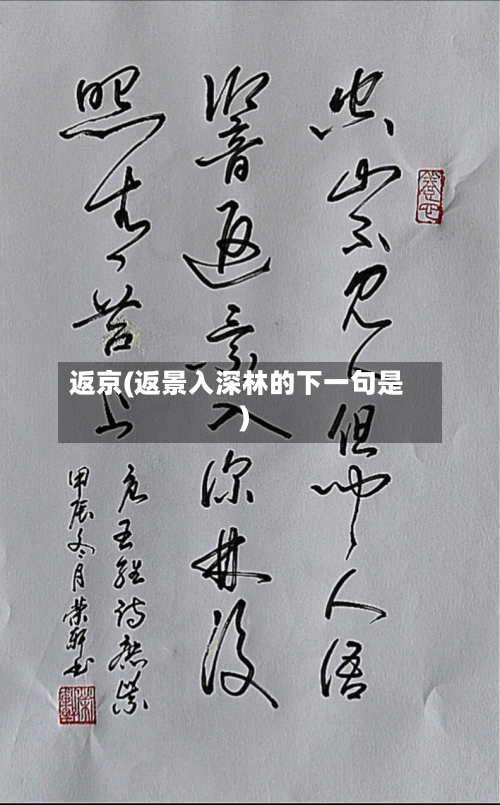 空山不见人但闻人语
响音返景入深林复
照青苔上
唐王维诗鹿柴
甲辰冬月荣轩书
返京(返景入深林的下一句是
)